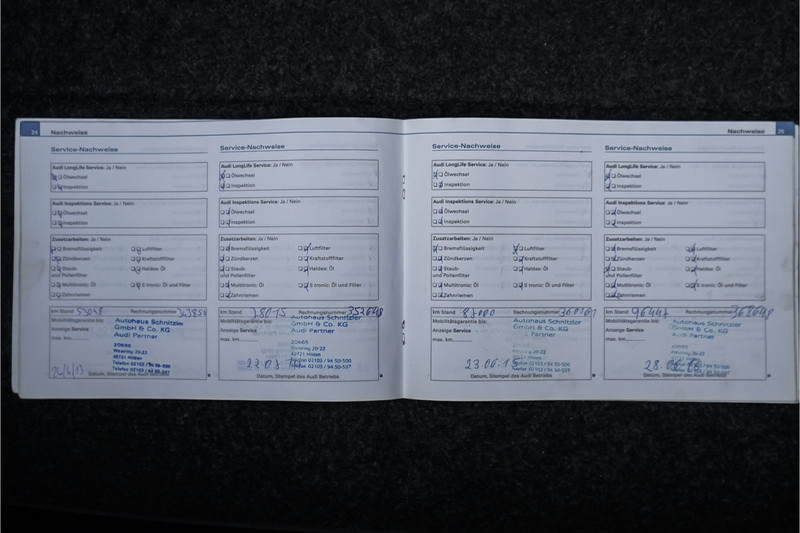 24 Nachweise
Service-Nachweise
Audi LongLife Service: Ja / Nein
Ölwechsel
Inspektion
Audi Inspektions Service: Ja / Nein
Ölwechsel
Inspektion
Zusatzarbeiten: Ja / Nein
Bremsflüssigkeit Luftfilter
Zündkerzen Kraftstofffilter
Staub- Haldex: Öl
und Pollenfilter
Multitronic: Öl S tronic: Öl und Filter
Zahnriemen
km Stand Rechnungsnummer
Mobilitätsgarantie bis:
Anzeige Service
max. km
Autohaus Schnitzler
GmbH & Co. KG
Audi Partner
40721 Hilden
Telefon 02103 / 94 50-500
Datum, Stempel des Audi Betriebs
Service-Nachweise
Audi LongLife Service: Ja / Nein
Ölwechsel
Inspektion
Audi Inspektions Service: Ja / Nein
Ölwechsel
Inspektion
Zusatzarbeiten: Ja / Nein
Bremsflüssigkeit Luftfilter
Zündkerzen Kraftstofffilter
Staub- Haldex: Öl
und Pollenfilter
Multitronic: Öl S tronic: Öl und Filter
Zahnriemen
km Stand 78015 Rechnungsnummer 352648
Mobilitätsgarantie bis:
Anzeige Service
max. km
Autohaus Schnitzler
GmbH & Co. KG
Audi Partner
40721 Hilden
Telefon 02103 / 94 50-500
Datum, Stempel des Audi Betriebs
Nachweise 25
Service-Nachweise
Audi LongLife Service: Ja / Nein
Ölwechsel
Inspektion
Audi Inspektions Service: Ja / Nein
Ölwechsel
Inspektion
Zusatzarbeiten: Ja / Nein
Bremsflüssigkeit Luftfilter
Zündkerzen Kraftstofffilter
Staub- Haldex: Öl
und Pollenfilter
Multitronic: Öl S tronic: Öl und Filter
Zahnriemen
km Stand 87000 Rechnungsnummer
Mobilitätsgarantie bis:
Anzeige Service
max. km
Autohaus Schnitzler
GmbH & Co. KG
Audi Partner
23.06.15
Datum, Stempel des Audi Betriebs
Service-Nachweise
Audi LongLife Service: Ja / Nein
Ölwechsel
Inspektion
Audi Inspektions Service: Ja / Nein
Ölwechsel
Inspektion
Zusatzarbeiten: Ja / Nein
Bremsflüssigkeit Luftfilter
Zündkerzen Kraftstofffilter
Staub- Haldex: Öl
und Pollenfilter
Multitronic: Öl S tronic: Öl und Filter
Zahnriemen
km Stand 96447 Rechnungsnummer
Mobilitätsgarantie bis:
Anzeige Service
max. km
Autohaus Schnitzler
GmbH & Co. KG
Audi Partner
Datum, Stempel des Audi Betriebs